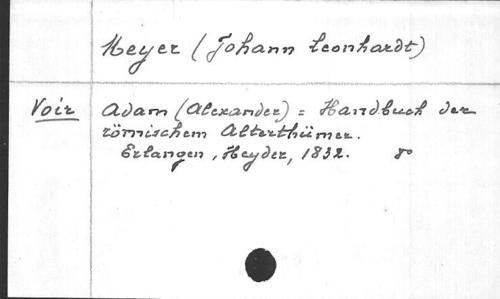 Meyer (Johann Leonhardt)
Voir Adam (Alexander) = Handbuch der
römischem Alterthümer.
Erlangen, Heyder, 1832. 8°